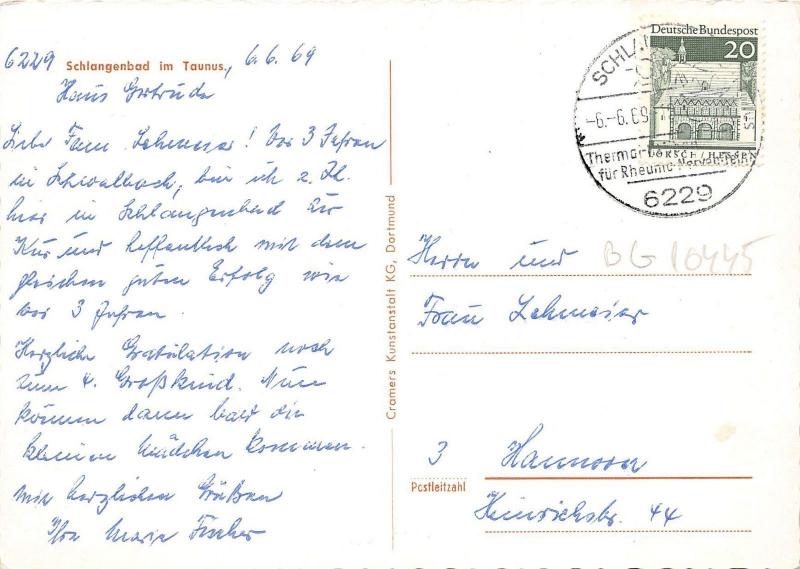 6229 Schlangenbad im Taunus, 6.6.69
Haus Gertrude
Liebe Frau Lehmeier! Vor 3 Jahren
in Schwalbach, bin ich z. Zt.
hier in Schlangenbad zur
Kur und hoffentlich mit dem
gleichen guten Erfolg wie
vor 3 Jahren.
Herzliche Gratulation noch
zum 4. Großkind. Nun
können dann bald die
kleinen Mädchen kommen.
Mit herzlichen Grüßen
Ihre Marie Fischer
Cramers Kunstanstalt KG, Dortmund
Deutsche Bundespost
20
LORSCH/HESSEN
SCHLA
-6.-6.69
Thermal
für Rheuma
6229
BG 10445
Herrn und
Frau Lehmeier
3 Hannover
Postleitzahl
Heinrichstr. 44